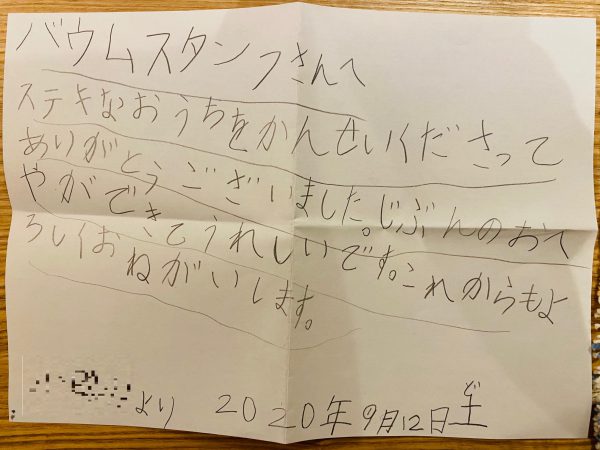 バウムスタンフさんへ
ステキなおうちをかんせいくださって
ありがとうございました。じぶんのおへ
やができてうれしいです。これからもよ
ろしくおねがいします。
より 2020年9月12日土
ど